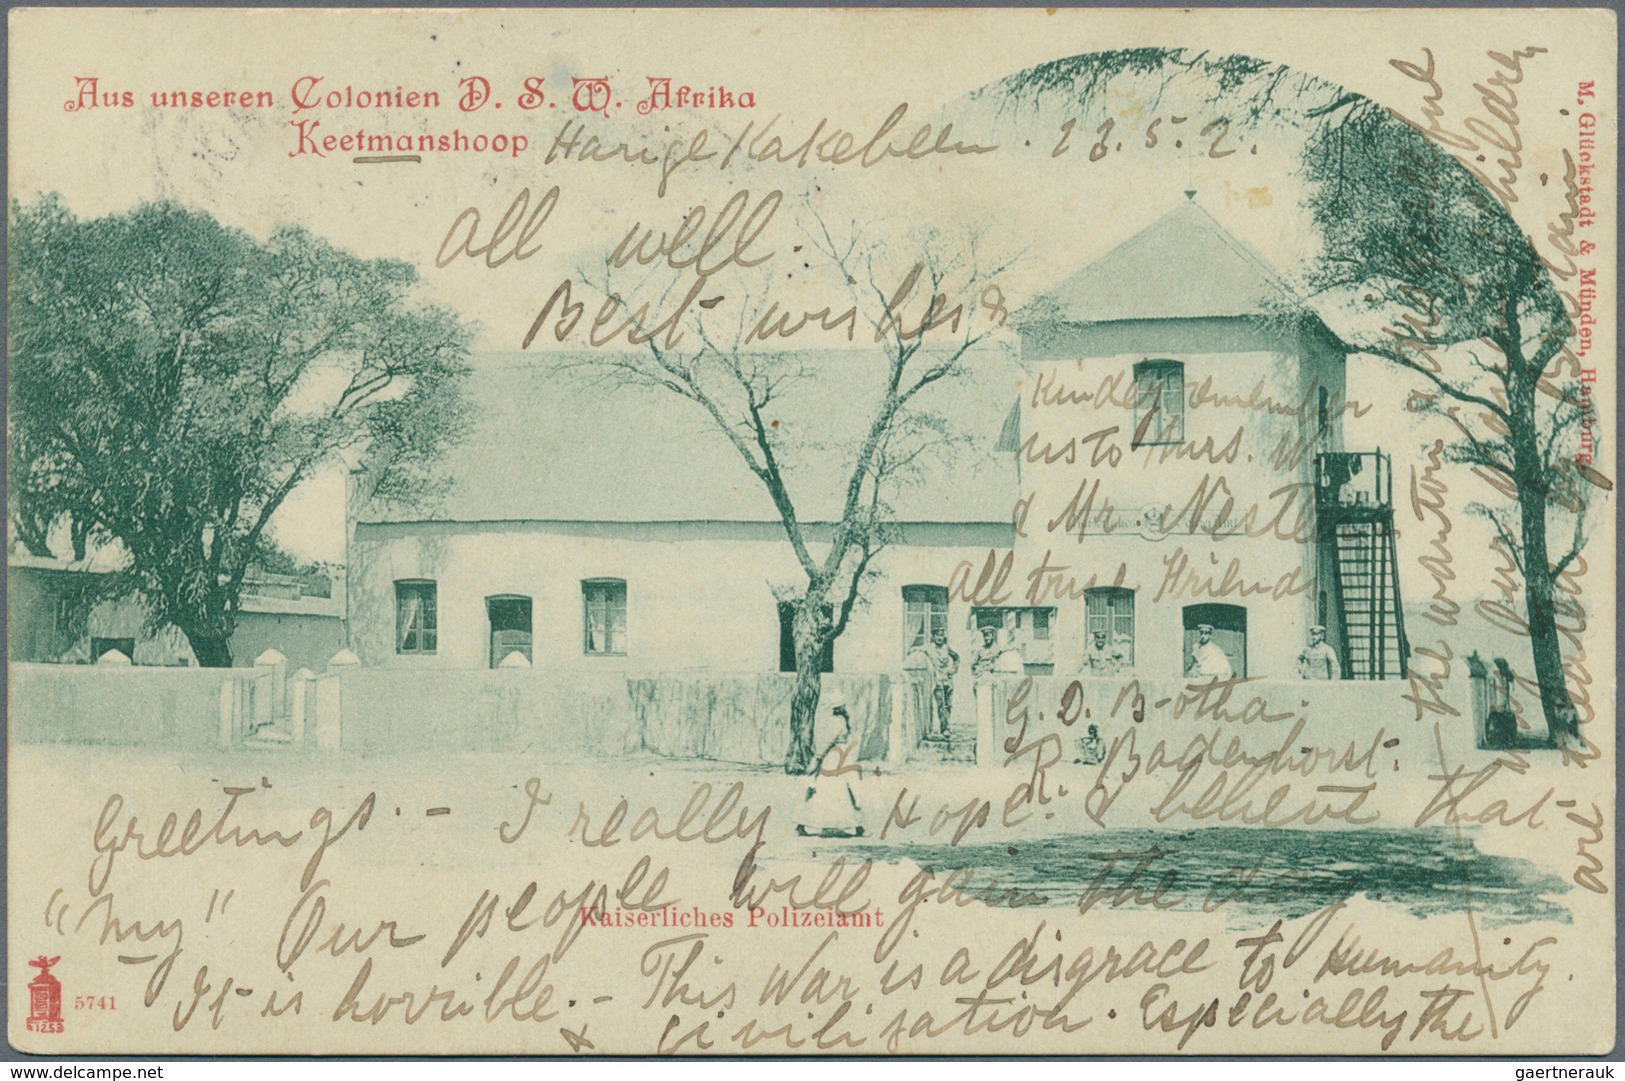 Aus unseren Colonien D. S. W. Afrika
Keetmanshoop Harige Kakebeen. 23. 5. 2.
all well.
Best wishes &
Kindly remember
us to Mrs. W
& Mr. Nestle
all true Friends
G. D. Botha.
R. Badenhorst.
Greetings. - I really Hope. & believe that
"my" Our people will gain the day.
Kaiserliches Polizeiamt
It is horrible. - This War is a disgrace to Humanity.
& civilization. Especially the
the wanton & disgraceful
our & children
are treated by Britain
M. Glückstadt & Münden, Hamburg
5741
1253
gaertnerauk
https://www.delcampe.net